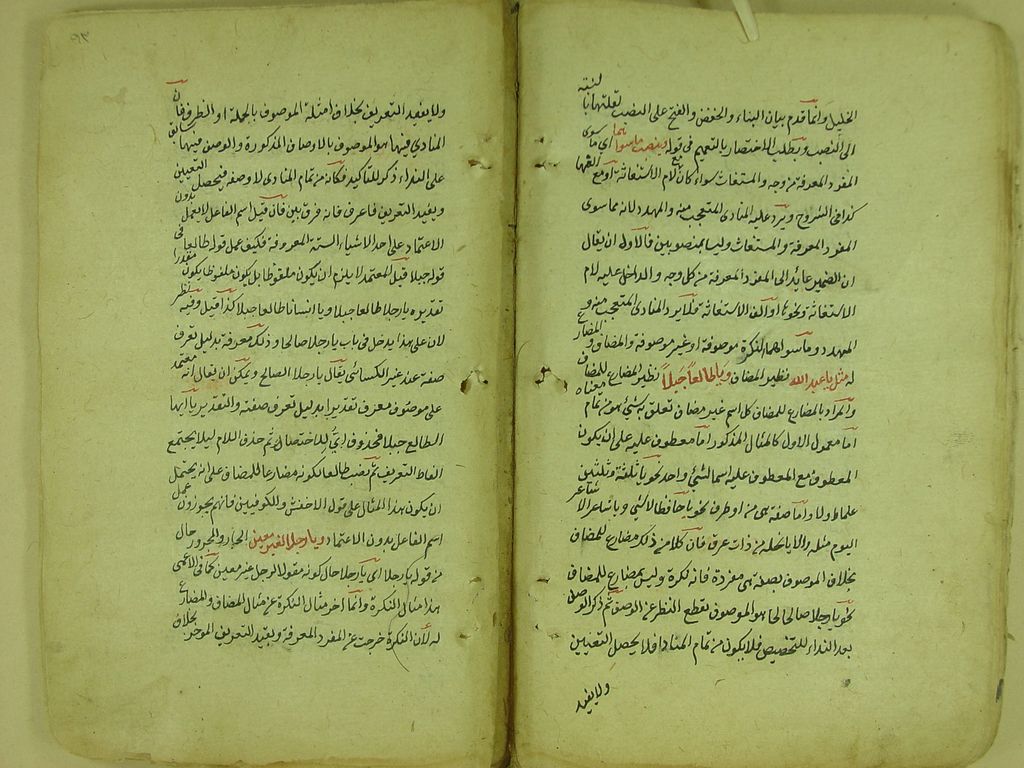 الخليل وانما قدم بيان البناء والخفض والفتح على النصب لقلتها بالنسبة
الى النصب ويطلب الاختصار بالتعميم في قوله وينصب ما سواهما اى ما سوى
المفرد المعرفة من وجه والمستغاث سواء كان مع لام الاستغاثة او مع الفها
كذا في الشروح ويرد عليه المنادى المتعجب منه والمهدد لانه مما سوى
المفرد المعرفة والمستغاث وليسا بمنصوبين فالاولى ان يقال
ان الضمير عائد الى المفرد المعرفة من كل وجه والداخل عليه لام
الاستغاثة ونحوها او الف الاستغاثة فلا يرد المنادى المتعجب منه و
المهدد وما سواهما نكرة موصوفة او غير موصوفة والمضاف والمضارع
له مثل يا عبد الله نظير المضاف ويا طالعا جبلا نظير المضارع للمضاف
والمراد بالمضارع للمضاف كل اسم غير مضاف تعلق به شيء هو من تمام معناه
اما معمول الاول كالمثال المذكور اما معطوف عليه على ان يكون
المعطوف مع المعطوف عليه اسما لشيء واحد نحو يا ثلثة وثلثين
علما ولا واما صفة هي من او ظرف نحو يا حافظا لا ينسى ويا شاعر الا شاعر
اليوم مثله والا يا نخلة من ذات عرق فان كلا من ذكر مضارع للمضاف
بخلاف الموصوف بصلة هي مفردة فانه نكرة وليس بمضارع للمضاف
نحو يا رجلا صالحا هو الموصوف بقطع النظر عن الوصف ثم ذكر الوصف
بعد النداء للتخصيص فلا يكون من تمام المنادا فلا يحصل التعيين
ولا يفيد
٩٣
ولا يفيد التعريف بخلاف امثلة الموصوف بالجملة او الظرف فان
المنادى فيها هو الموصوف بالاوصاف المذكورة والوصف فيها سابق
على النداء ذكر للتاكيد فكانه من تمام المنادى لا وصفه فيحصل التعيين
ويفيد التعريف فاعرف فانه فرق بين فان قيل اسم الفاعل لا يعمل بدون
الاعتماد على احد الاشياء الستة المعروفة فكيف عمل قوله طالعا في
قوله جبلا قيل المعتمد لا يلزم ان يكون ملفوظا بل يكون ملفوظا ويكون مقدرا
تقديره يا رجلا طالعا جبلا ويا انسانا طالعا جبلا كذا قيل وفيه نظر
لان على هذا يدخل في باب يا رجلا صالحا وذلك معرفة بدليل تعرف
صفته عند غير الكسائى يقال يا رجلا الصالح ويمكن ان يقال انه معتمد
على موصوف معرف تقديرا بدليل تعرف صفته والتقدير يا ايها
الطالع جبلا فحذف اى للاختصار ثم حذف اللام ليلا يجتمع
الفاظ التعريف ثم نصب طالعا لكونه مضارعا للمضاف على انه يحتمل
ان يكون هذا المثال على قول الاخفش والكوفيين فانهم يجوزون عمل
اسم الفاعل بدون الاعتماد ويا رجلا لغير معين الجار والمجرور حال
من قوله يا رجلا اى يا رجلا حال كونه مقولا لرجل غير معين كما في الاعمى
هذا مثال النكرة وانما اخر مثال النكرة عن مثال المضاف والمضارع
له لان النكرة خرجت عن المفرد المعرفة وبقيد التعريف الموخر بخلاف